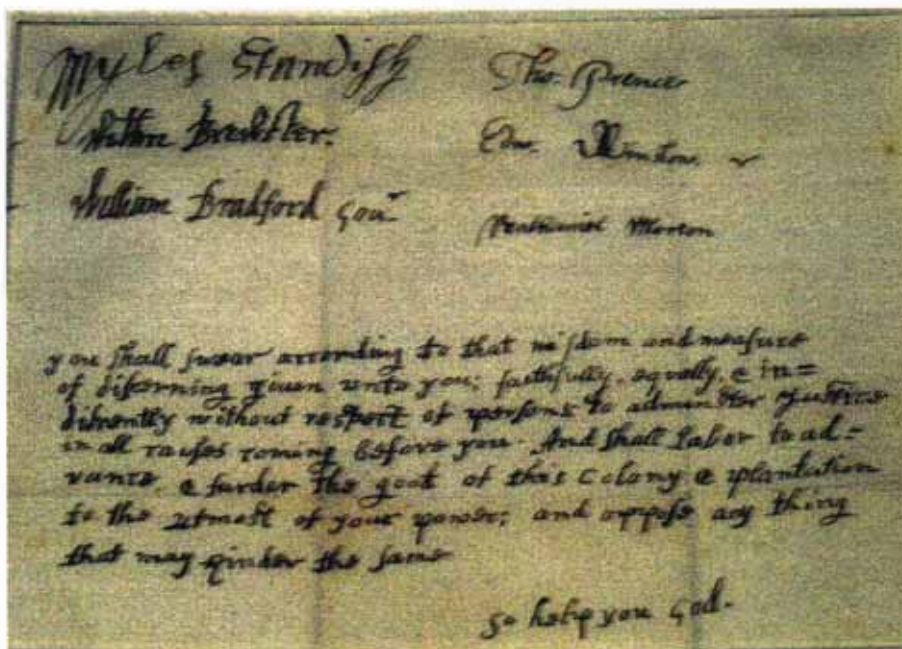 Myles Standish
Willm Brewster.
William Bradford Gour
Tho. Prence
Edw. Winslow
Nathaniel Morton
you shall swear according to that wisdom and measure
of diserning given unto you; faithfully, equally, & in=
difrently without respect of persons to administer Justice
in all causes coming before you. And shall labor to ad=
vance, & furder the good of this Colony & plantation
to the utmost of your power; and oppose any thing
that may hinder the same
So help you God.